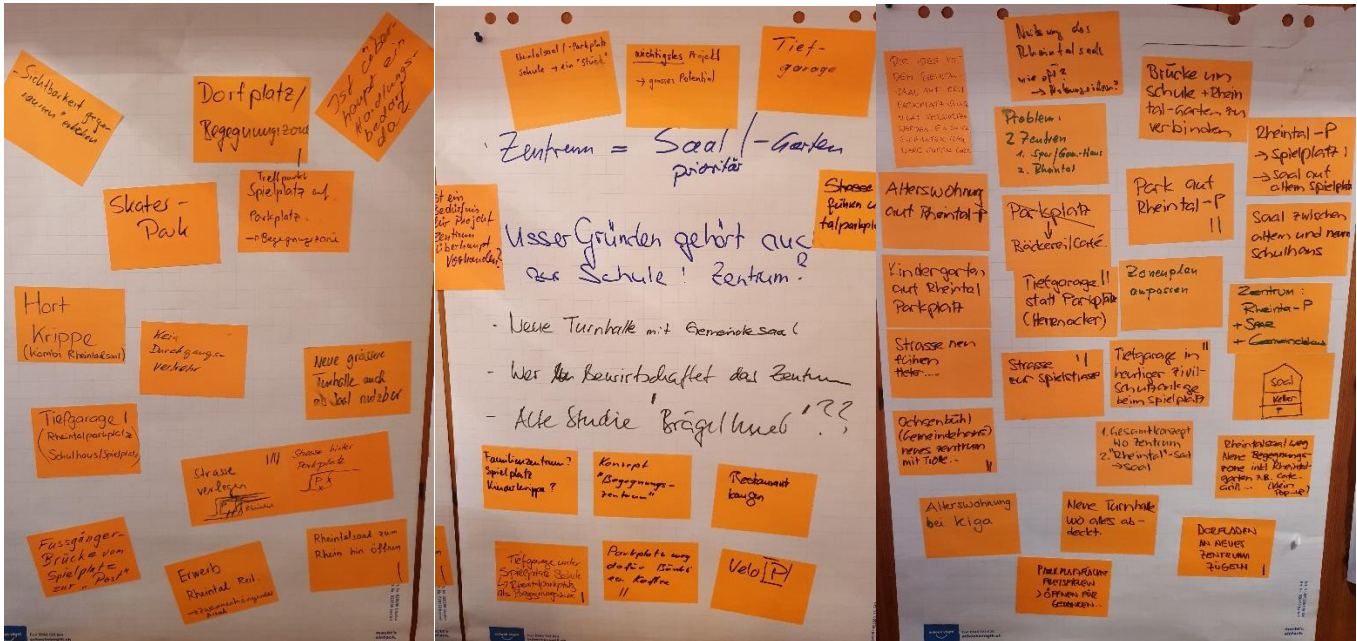 Sichtbarkeit gegen
aussen erhöhen
Dorfplatz/
Begegnungszone
Ist
über-
haupt ein
Handlungs-
bedarf
da
Skater-
Park
Treffpunkt
Spielplatz auf
Parkplatz.
→ Begegnungszone
Hort
Krippe
(Kombi Rheintalsaal)
Kein
Durchgangs-
verkehr
Neue grössere
Turnhalle auch
als Saal nutzbar
Tiefgarage !
(Rheintalparkplatz
Schulhaus/Spielplatz)
Strasse
verlegen
Strasse hinter
Parkplatz
Fussgänger-
Brücke vom
Spielplatz
zur "Post"
Erwerb
Rheintal Rest.
Rheintalsaal zum
Rhein hin öffnen
Rheintalsaal / -Parkplatz
Schule → ein "Stück"
wichtigstes Projekt
→ grosses Potential
Tief-
garage
Zentrum = Saal / -Garten
prioritär
st ein
Bedürfnis
für Projekt
Zentrum
überhaupt
vorhanden?
Strasse
führen
talparkpl
Usser Gründen gehört auc
zur Schule ! Zentrum ?
- Neue Turnhalle mit Gemeindesaal
- Wer Bewirtschaftet das Zentrum
- Alte Studie "
" ??
Familienzentrum?
Spielplatz
Kinderkrippe?
Konzept
"Begegnungs-
zentrum"
Restaurant
bauen
Tiefgarage unter
Spielplatz Schule
→ Rheintalparkplatz
als Begegnungszone
Parkplatz weg
dafür Bänkli
Velo P
DIE IDEE IST
DEN RHEINTAL-
SAAL AUF DEM
Nutzung des
Rheintalsaals
wie oft?
Brücke um
Schule + Rhein
tal-Garten zu
verbinden
Problem:
2 Zentren
1. Spar/Gem.-Haus
2. Rheintal
Rheintal-P
→ Spielplatz
→ Saal auf
altem Spielplatz
Alterswohnung
auf Rheintal-P
Parkplatz
Bäckerei/Café
Park auf
Rheintal-P
Saal zwischen
altem und neuem
Schulhaus
Kindergarten
auf Rheintal
Parkplatz
Tiefgarage
statt Parkplatz
(Herrenacker)
Zonenplan
anpassen
Zentrum:
Rheintal-P
+ Saal
+ Gemeindehaus
Strasse neu
führen
Strasse
zur Spielstrasse
Tiefgarage in
heutiger Zivil-
schutzanlage
beim Spielplatz
Saal
Keller
P
Ochsenbühl
(Gemeindehaus)
neues Zentrum
mit
1. Gesamtkonzept
Wo Zentrum
2. "Rheintal"-Saal
→ Saal
Rheintalsaal weg
Neue Begegnungs-
zone inkl Rheintal-
garten z.B. Café
Grill ... (klein
Pop-up)
Alterswohnung
bei Kiga
Neue Turnhalle
wo alles ab-
deckt.
DORFLADEN
IN NEUES
ZENTRUM
ZÜGELN
PARKPLATZFLÄCHE
FREISPIELEN
> ÖFFNEN FÜR
GEDANKEN...